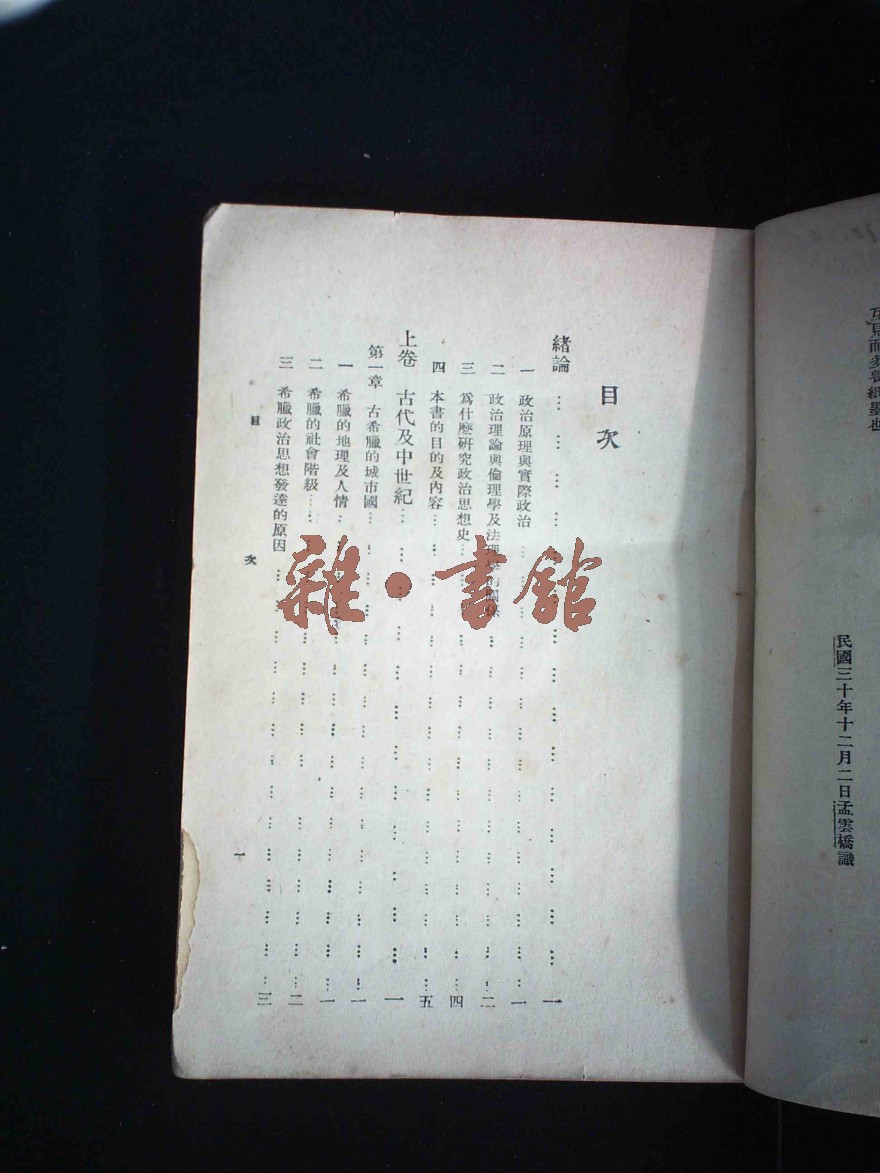 互見而多費紙墨也
民國三十年十二月二日孟雲橋識
目次
緒論…………………一
一 政治原理與實際政治…………………一
二 政治理論與倫理學及法理學的關係…………………二
三 爲什麽硏究政治思想史…………………四
四 本書的目的及內容…………………五
上卷 古代及中世紀…………………一
第一章 古希臘的城市國…………………一
一 希臘的地理及人情…………………一
二 希臘的社會階級…………………二
三 希臘政治思想發達的原因…………………三
目次
一
雜·書館